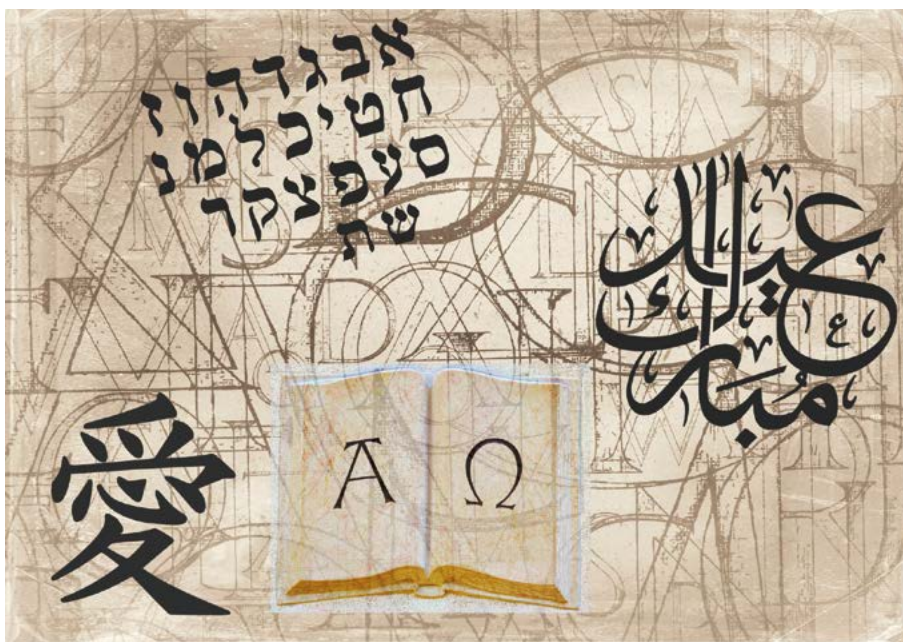 אבגדהוז
חטיכלמנ
סעפצקר
שת
عيد
مُبَارك
愛
Α Ω